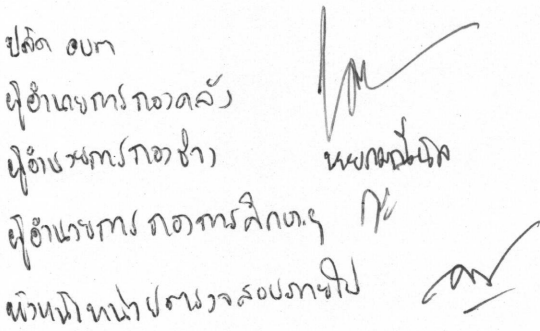 ปลัด อบต
ผู้อำนวยการกองคลัง
ผู้อำนวยการกองช่าง
ผู้อำนวยการ กองการศึกษาฯ
หัวหน้าหน่วยตรวจสอบภายใน